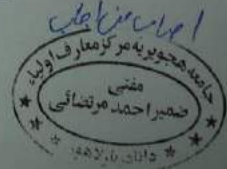 اصاب من اجاب
جامعہ ہجویریہ مرکز معارف اولیاء
مفتی
ضمیر احمد مرتضائی
داتا دربار لاہور